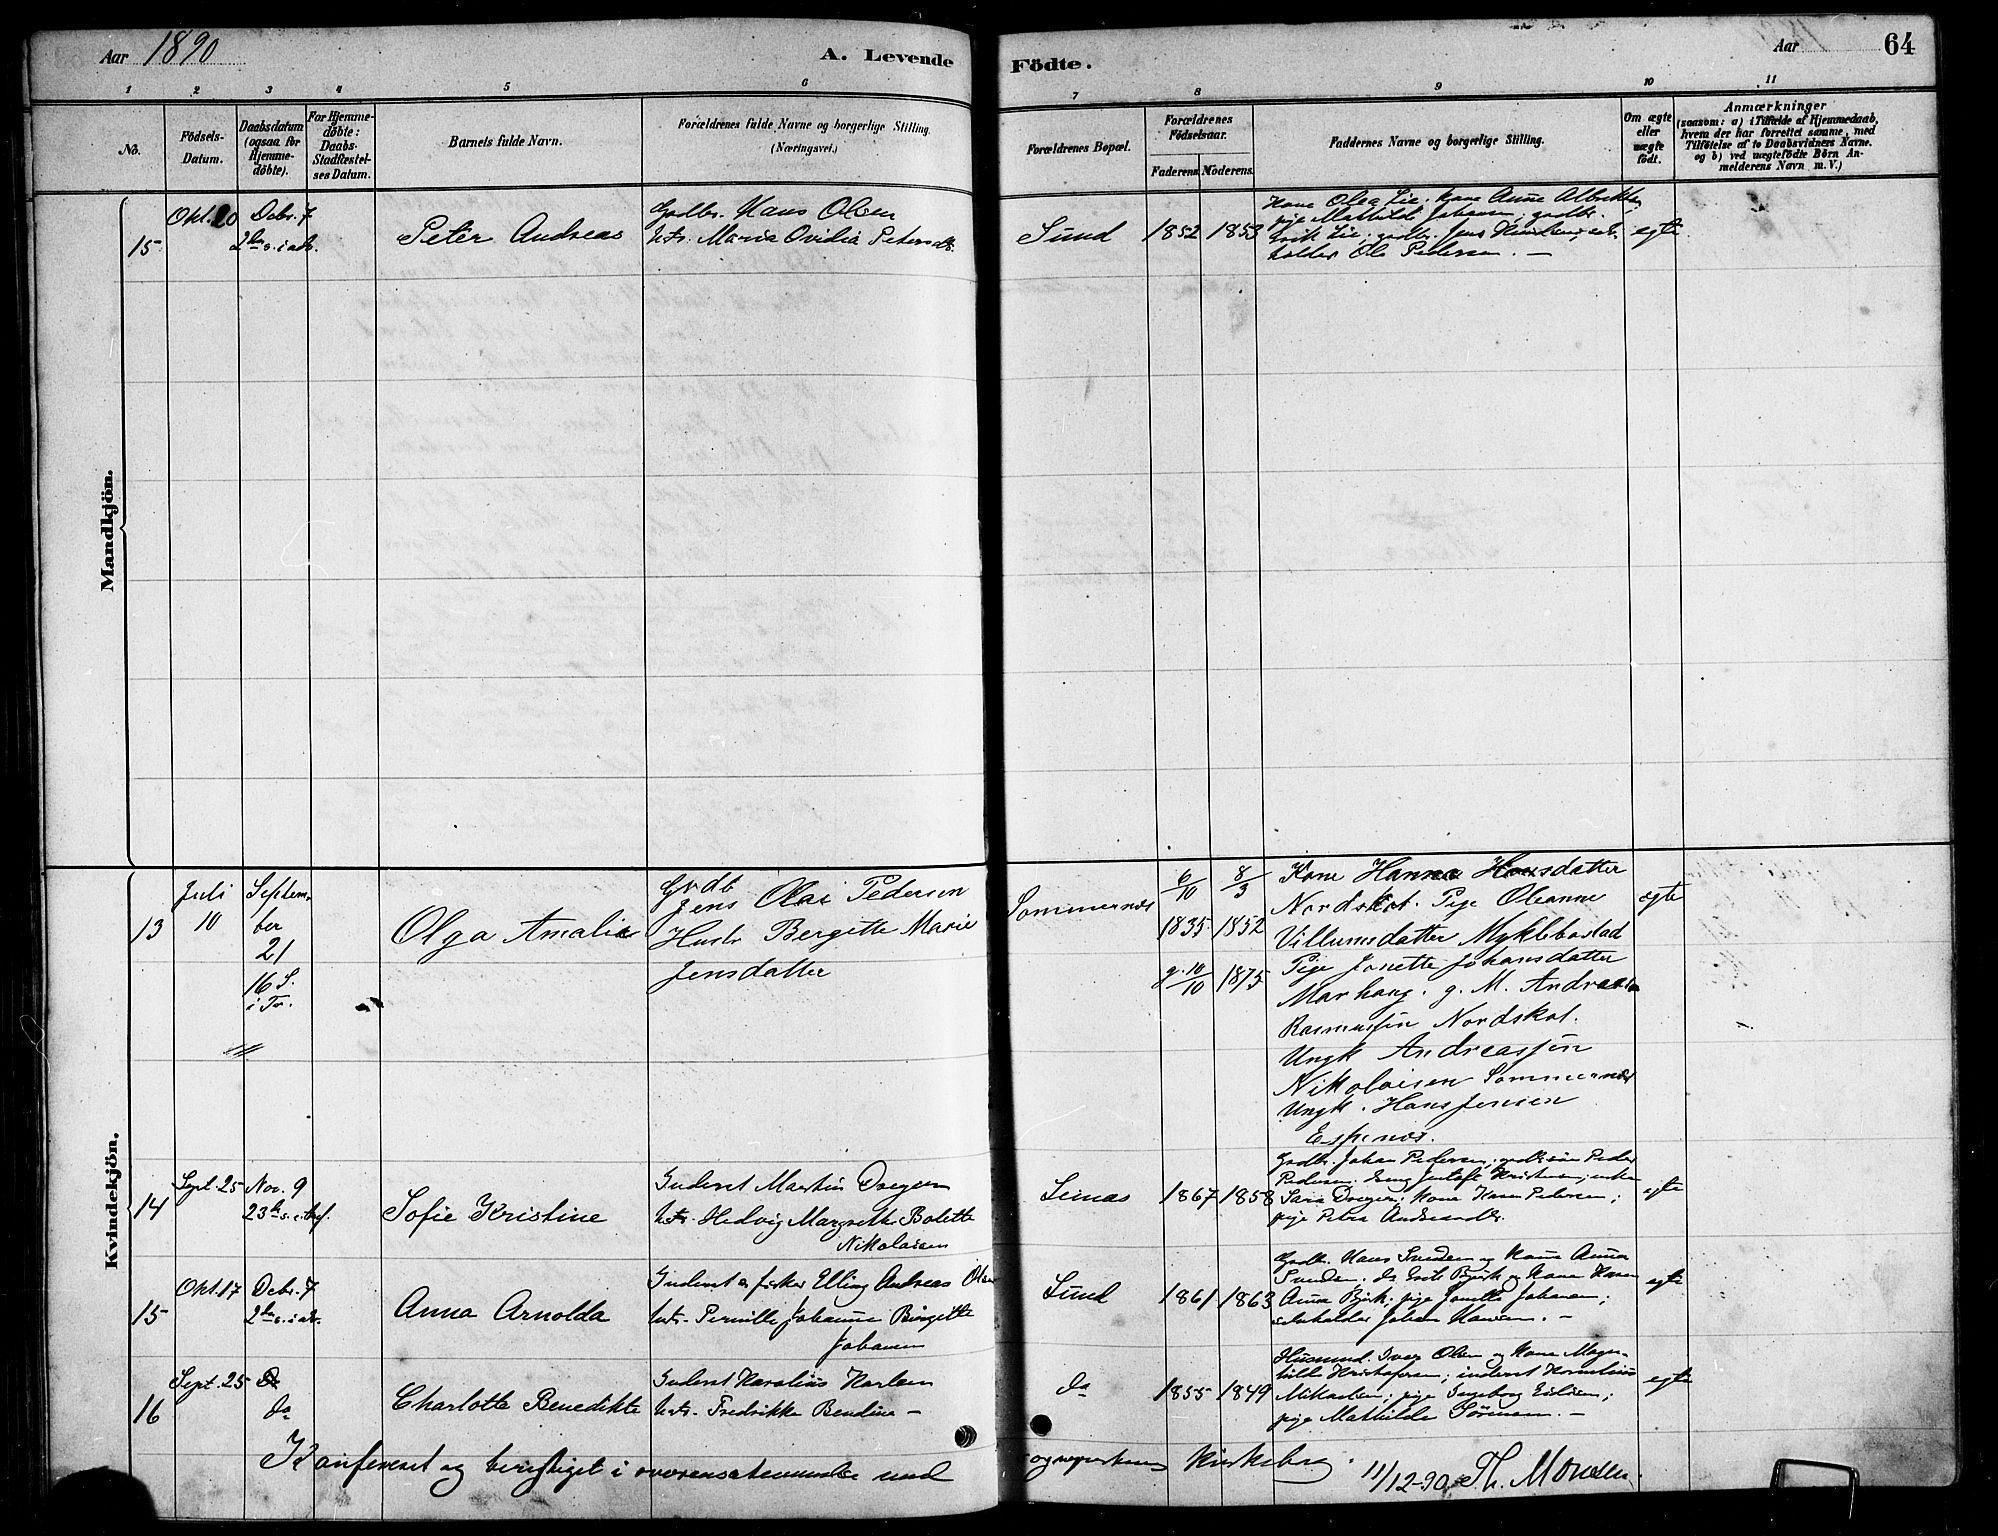 Aar 1890
A. Levende Födte.
Aar
64
1 2 3 4 5 6 7 8 9 10 11
No.
Födsels-Datum.
Daabsdatum (ogsaa for Hjemme-døbte).
For Hjemme-døbte: Daabs-Stadfæstel-ses Datum.
Barnets fulde Navn.
Forældrenes fulde Navne og borgerlige Stilling. (Næringsvei.)
Forældrenes Bopæl.
Forældrenes Födselsaar.
Faderens. Moderens.
Faddernes Navne og borgerlige Stilling.
Om ægte eller uægte födt.
Anmærkninger (saasom: a) i Tilfælde af Hjemmedaab, hvem der har forrettet samme, med Tilföielse af to Daabsvidners Navne. og b) ved uægtefödte Börn Anmelderens Navn m.V.)
Mandkjön.
15 Okt. 20 Debr. 7
2den s. i adv.
Peter Andreas
Gadbr. Hans Olsen
hstr. Maria Ovidia Petersdtr.
Sund 1852 1853
Kone Olea Lie. kone Anne Albrikts
pige Mathilde Johansen; gadbr.
Erik Lie; gadbr. Jens
holder Ole Pedersen. –
egte
Kvindekjön.
13 Juli 10
Septem-
ber
21
16 S.
i Tr.
Olga Amalie
Grdb
Jens Olai Pedersen
Hustr Bergitte Marie
Jensdatter
Sommernæs
6/10 1835 8/3 1852
g. 10/10 1875
Kone Hanna Hansdatter
Nordskot. Pige Oleanne
Villumsdatter Myklebostad
Pige Jonette Johansdatter
Marhaug. g. M. Andreas
Rasmussen Nordskot.
Ungk Andreas Jen
Nikolaisen Sommernæs
Ungk. Hans Jensen
Espenæs.
ægte
14 Sept. 25 Nov. 9
23de s. e. tref.
Sofie Kristine
Inderst Martin Dreyer
hstr. Hedvig Margrethe Bolette
Nikolaisen
Simas 1867 1858
Gadbr. Johan Pedersen; gadbrsøn Peder
Pedersen. Ung Jentoft Kristensen; enke
Sara Dreyer; kone Karen Pedersen;
pige Petra Andreasdtr.
egte
15 Okt. 17 Debr. 7
2den s. i adv.
Anna Arnolda
Inderst og fisker Elling Andreas Olsen
hstr. Pernille Johanne Birgitte
Johansen
Sund 1861 1863
Gadbr. Hans Svendsen og kone Anna
Svendsen. do Erik Bjørk og kone Karen
Anna Bjørk. pige Jonette Johansen;
selvholder Johan Hansen. –
egte
16 Sept. 25
do
Charlotte Benedikte
Inderst Karolius Karlsen
hstr. Fredrikke Bendine –
do 1855 1849
Husmand. Iver Olsen og kone Magn-
hilde Kristofersen; inderst Kornelius
Mikaelsen; pige Ingeborg Eilisen;
pige Mathilde Sørensen. –
egte
Konfereret og berigtiget i overensstemmelse med sogneprestens Kirkebog. 11/12-90. Th. Monsen